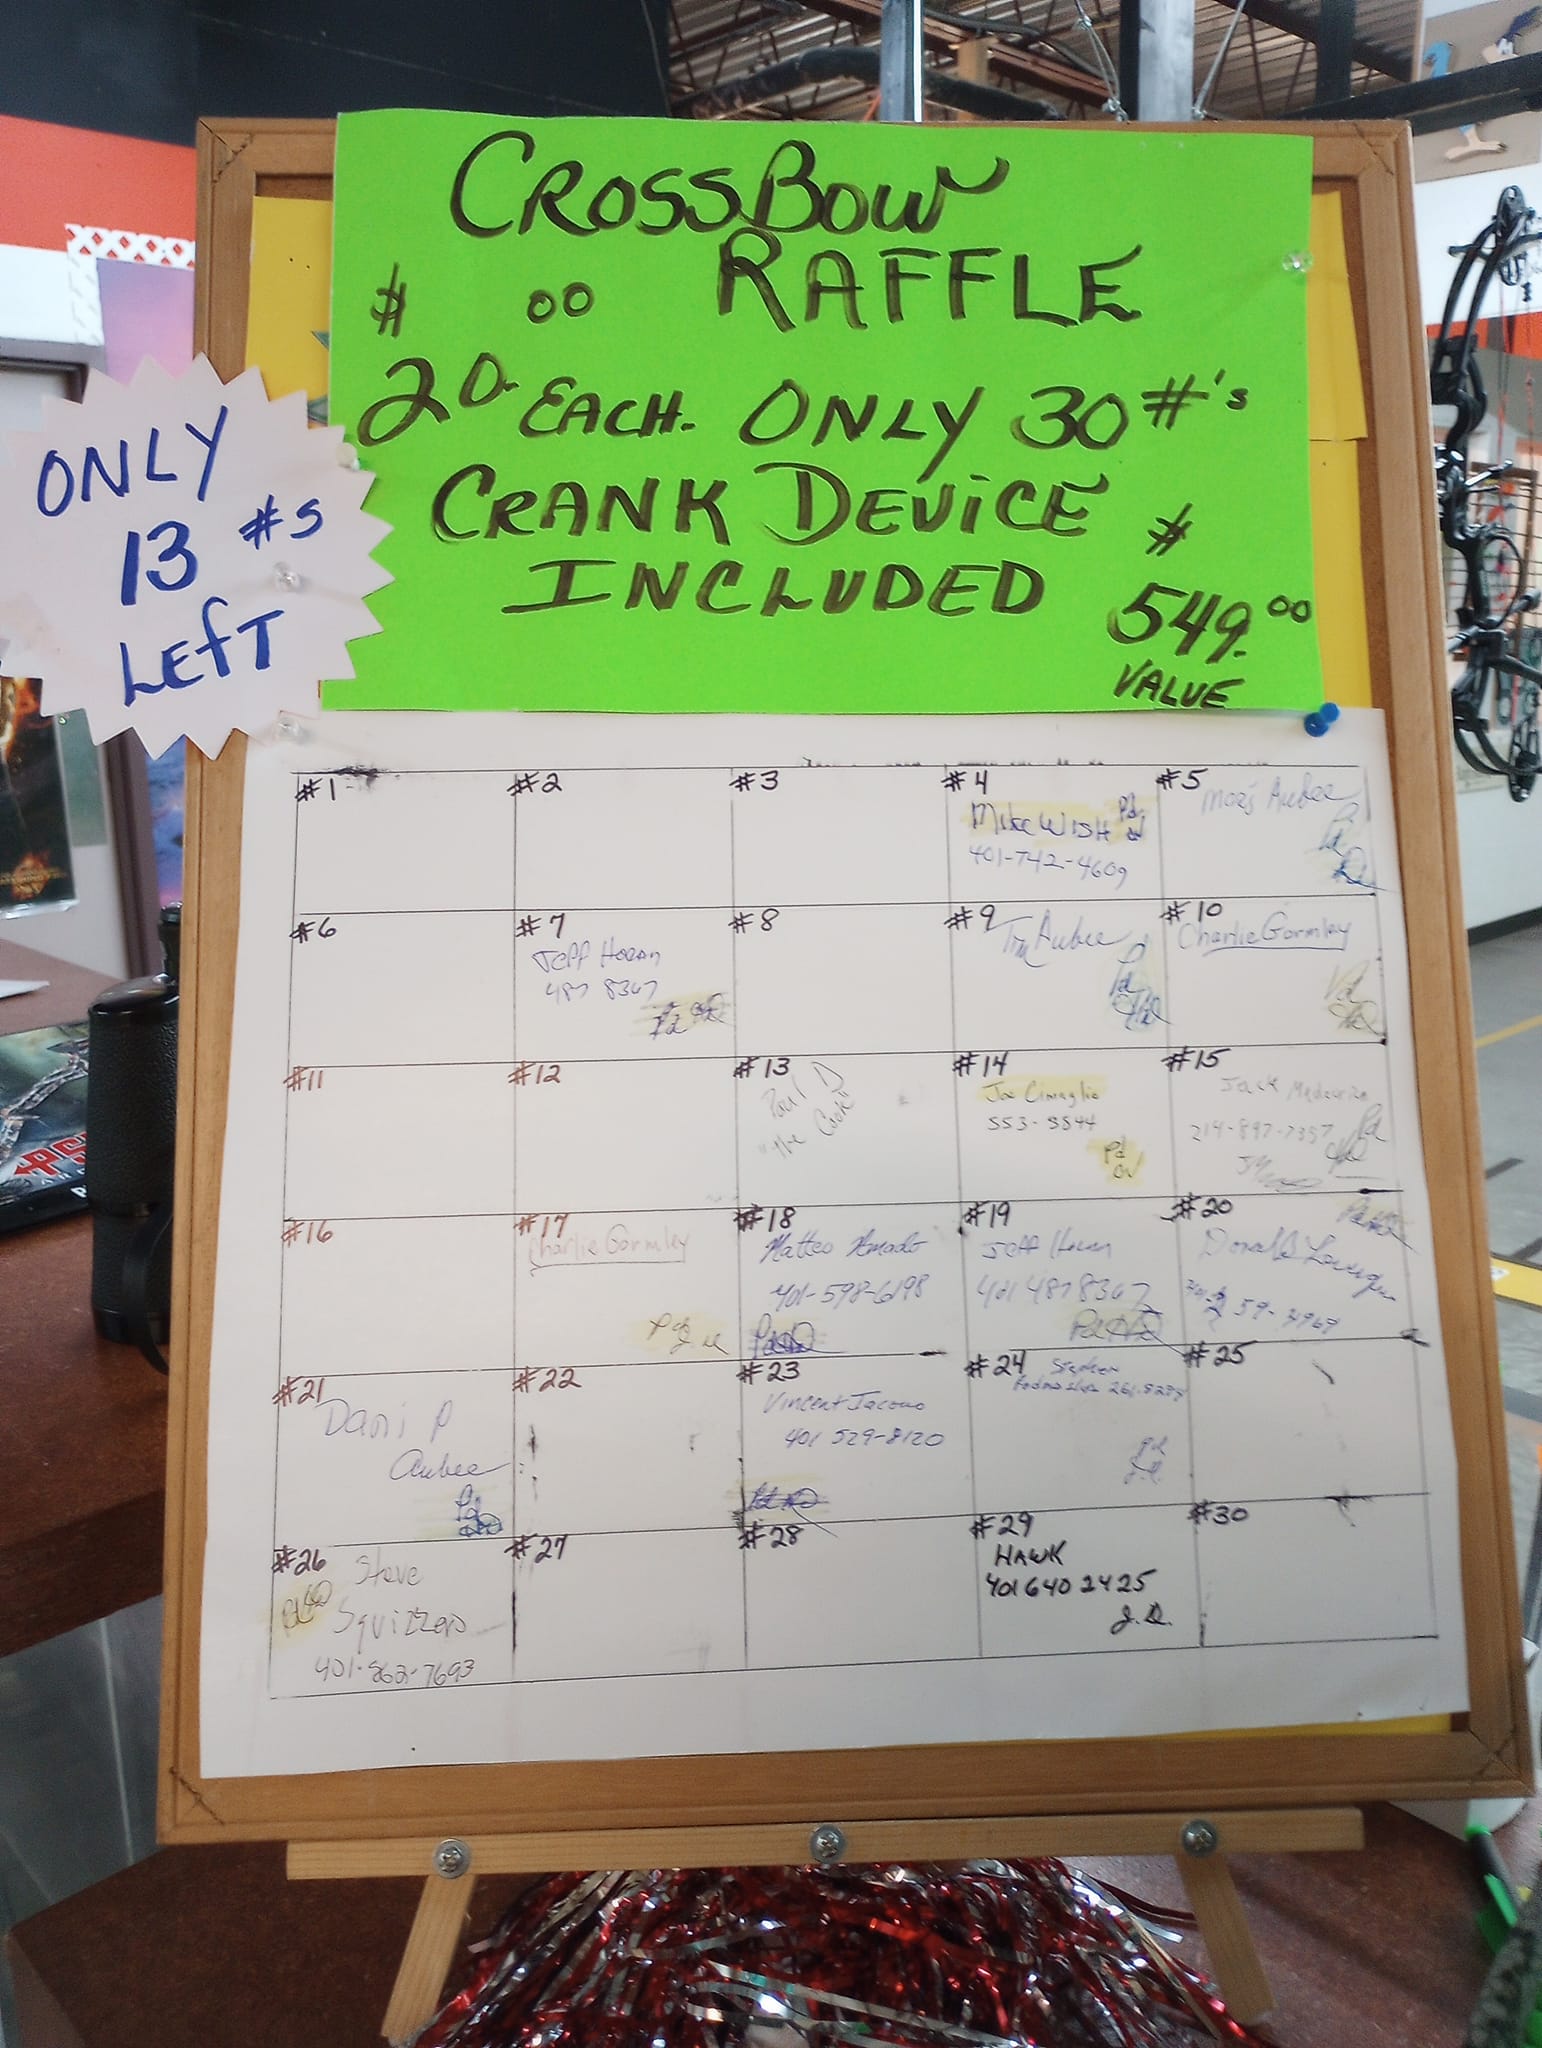 CROSSBOW
RAFFLE
$20.00 EACH. ONLY 30 #'s
CRANK DEVICE
INCLUDED
$549.00
VALUE
ONLY
13 #s
LEFT
#1
#2
#3
#4
Mike WISH Pd
401-742-4609
#5
Aubee
Pd
#6
#7
Jeff Horan
487 8367
Pd
#8
#9
Tim Aubee
Pd
#10
Charlie Gormley
Pd
#11
#12
#13
Paul D
"the Cook"
#14
Joe Cimaglia
553-5544
Pd
#15
Jack
214-897-7357 Pd
#16
#17
Charlie Gormley
Pd
#18
Matteo Amado
401-598-6198
Pd
#19
Jeff Horan
401 487 8367
Pd
#20
Pd
Donald
59-4969
#21
Dani P
Aubee
Pd
#22
#23
Vincent Iacono
401 529-8120
Pd
#24
Stephen
261-8298
Pd
#25
#26
Steve
Pd
Squizzero
401-862-7693
#27
#28
#29
HAWK
401 640 2425
J.D.
#30